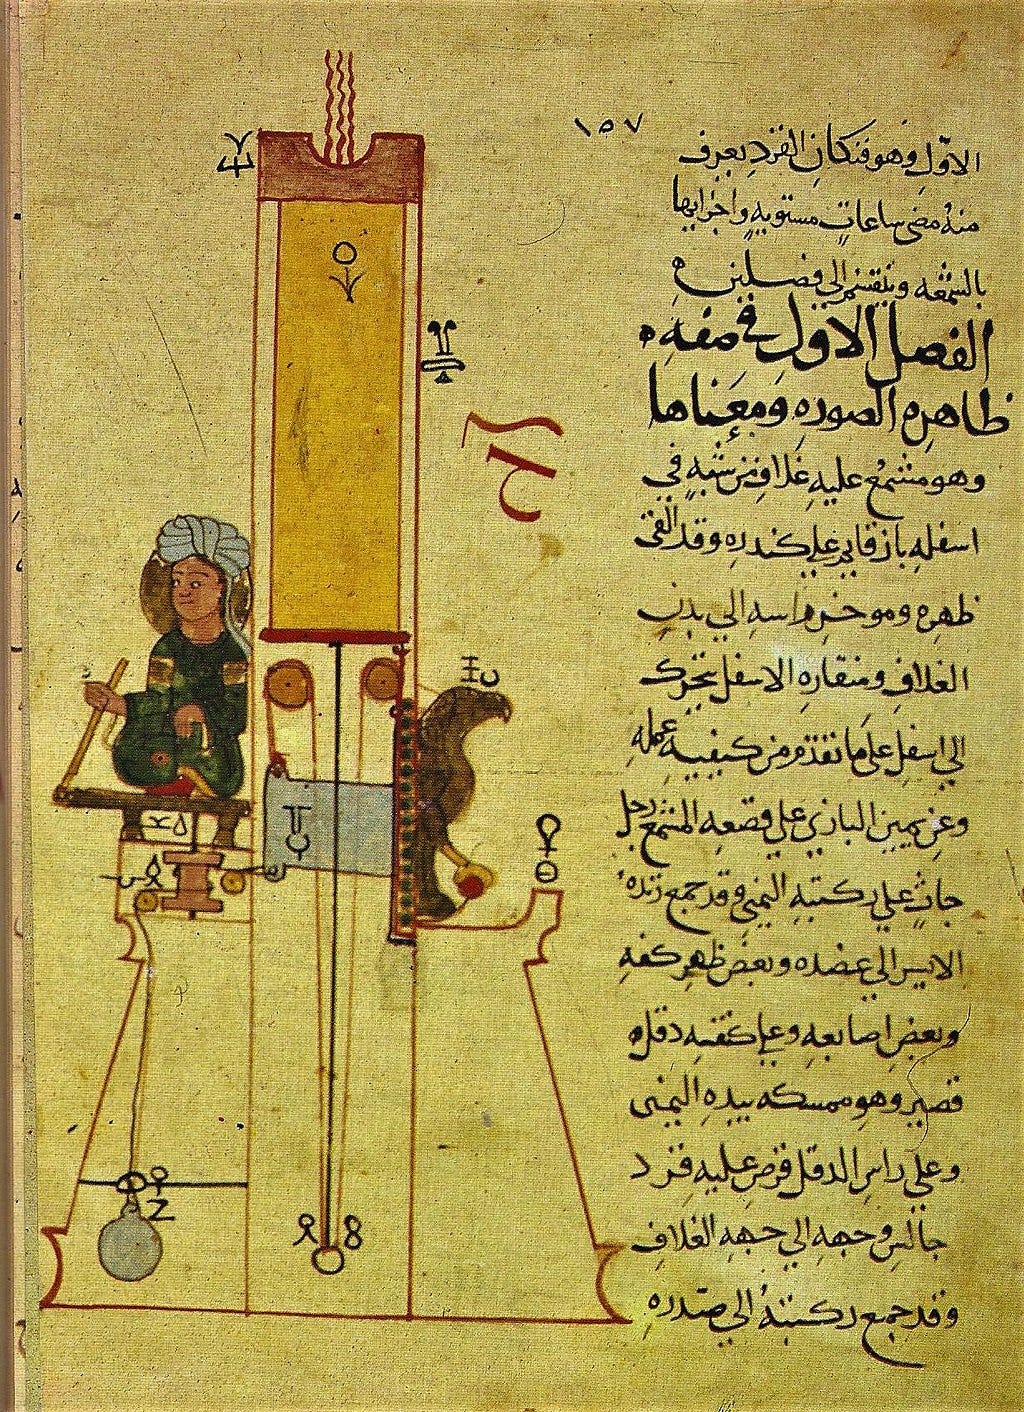 ١٥٧
الاول وهو فنكان القرد يعرف
منه مضي ساعات مستويه واجزايها
بالشمعه وينقسم الى فصلين
الفصل الاول في صفه
ظاهره الصوره ومعناها
وهو مشمع عليه غلاف من شبه في
اسفله باز قايم على كندره وقد القى
ظهره وموخر راسه الي بدن
الغلاف ومنقاره الاسفل يتحرك
الي اسفل على ما تقدم من كيفيه عمله
وعن يمين البازي على قصعه المشمع رجل
جاث على ركبته اليمنى وقد جمع زنده
الايسر الي عضده وبعض ظهر كفه
وبعض اصابعه وعلي كتفيه دقل
قصير وهو ممسكه بيده اليمنى
وعلي راس الدقل قرص عليه قرد
جالس وجهه الي جهه الغلاف
وقد جمع ركبته الي صدره